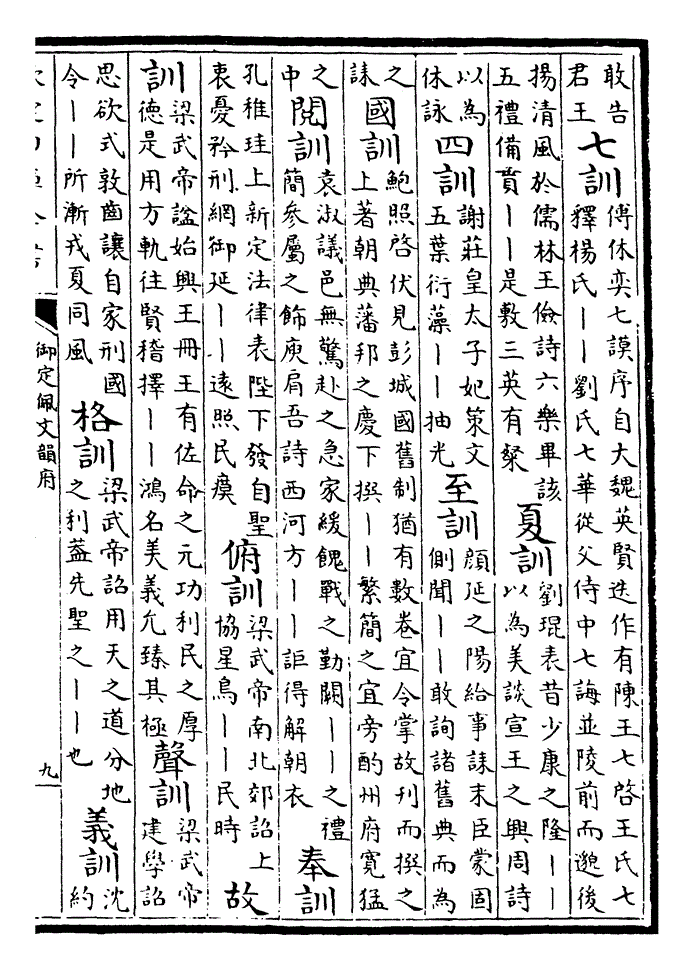 敢告
君王
七訓
傅休奕七謨序自大魏英賢迭作有陳王七啓王氏七
釋楊氏丨丨劉氏七華從父侍中七誨並陵前而邈後
揚清風於儒林王儉詩六樂畢該
五禮備貫丨丨是敷三英有粲
夏訓
劉琨表昔少康之隆丨丨
以為美談宣王之興周詩
以為
休詠
四訓
謝莊皇太子妃策文
五葉衍藻丨丨抽光
至訓
顔延之陽給事誄末臣蒙固
側聞丨丨敢詢諸舊典而為
之
誄
國訓
鮑照啓伏見彭城國舊制猶有數卷宜令掌故刋而撰之
上著朝典藩邦之慶下撰丨丨繁簡之宜旁酌州府寛猛
之
中
閱訓
袁淑議邑無驚赴之急家緩餽戰之勤闕丨丨之禮
簡參屬之飾庾肩吾詩西河方丨丨詎得解朝衣
奉訓
孔稚珪上新定法律表陛下發自聖
衷憂矜刑網御延丨丨逺照民瘼
俯訓
梁武帝南北郊詔上
協星鳥丨丨民時
故
訓
梁武帝諡始興王冊王有佐命之元功利民之厚
德是用方軌往賢稽擇丨丨鴻名美義允臻其極
聲訓
梁武帝
建學詔
思欲式敦齒讓自家刑國
令丨丨所漸戎夏同風
格訓
梁武帝詔用天之道分地
之利葢先聖之丨丨也
義訓
沈
約
御定佩文韻府
九